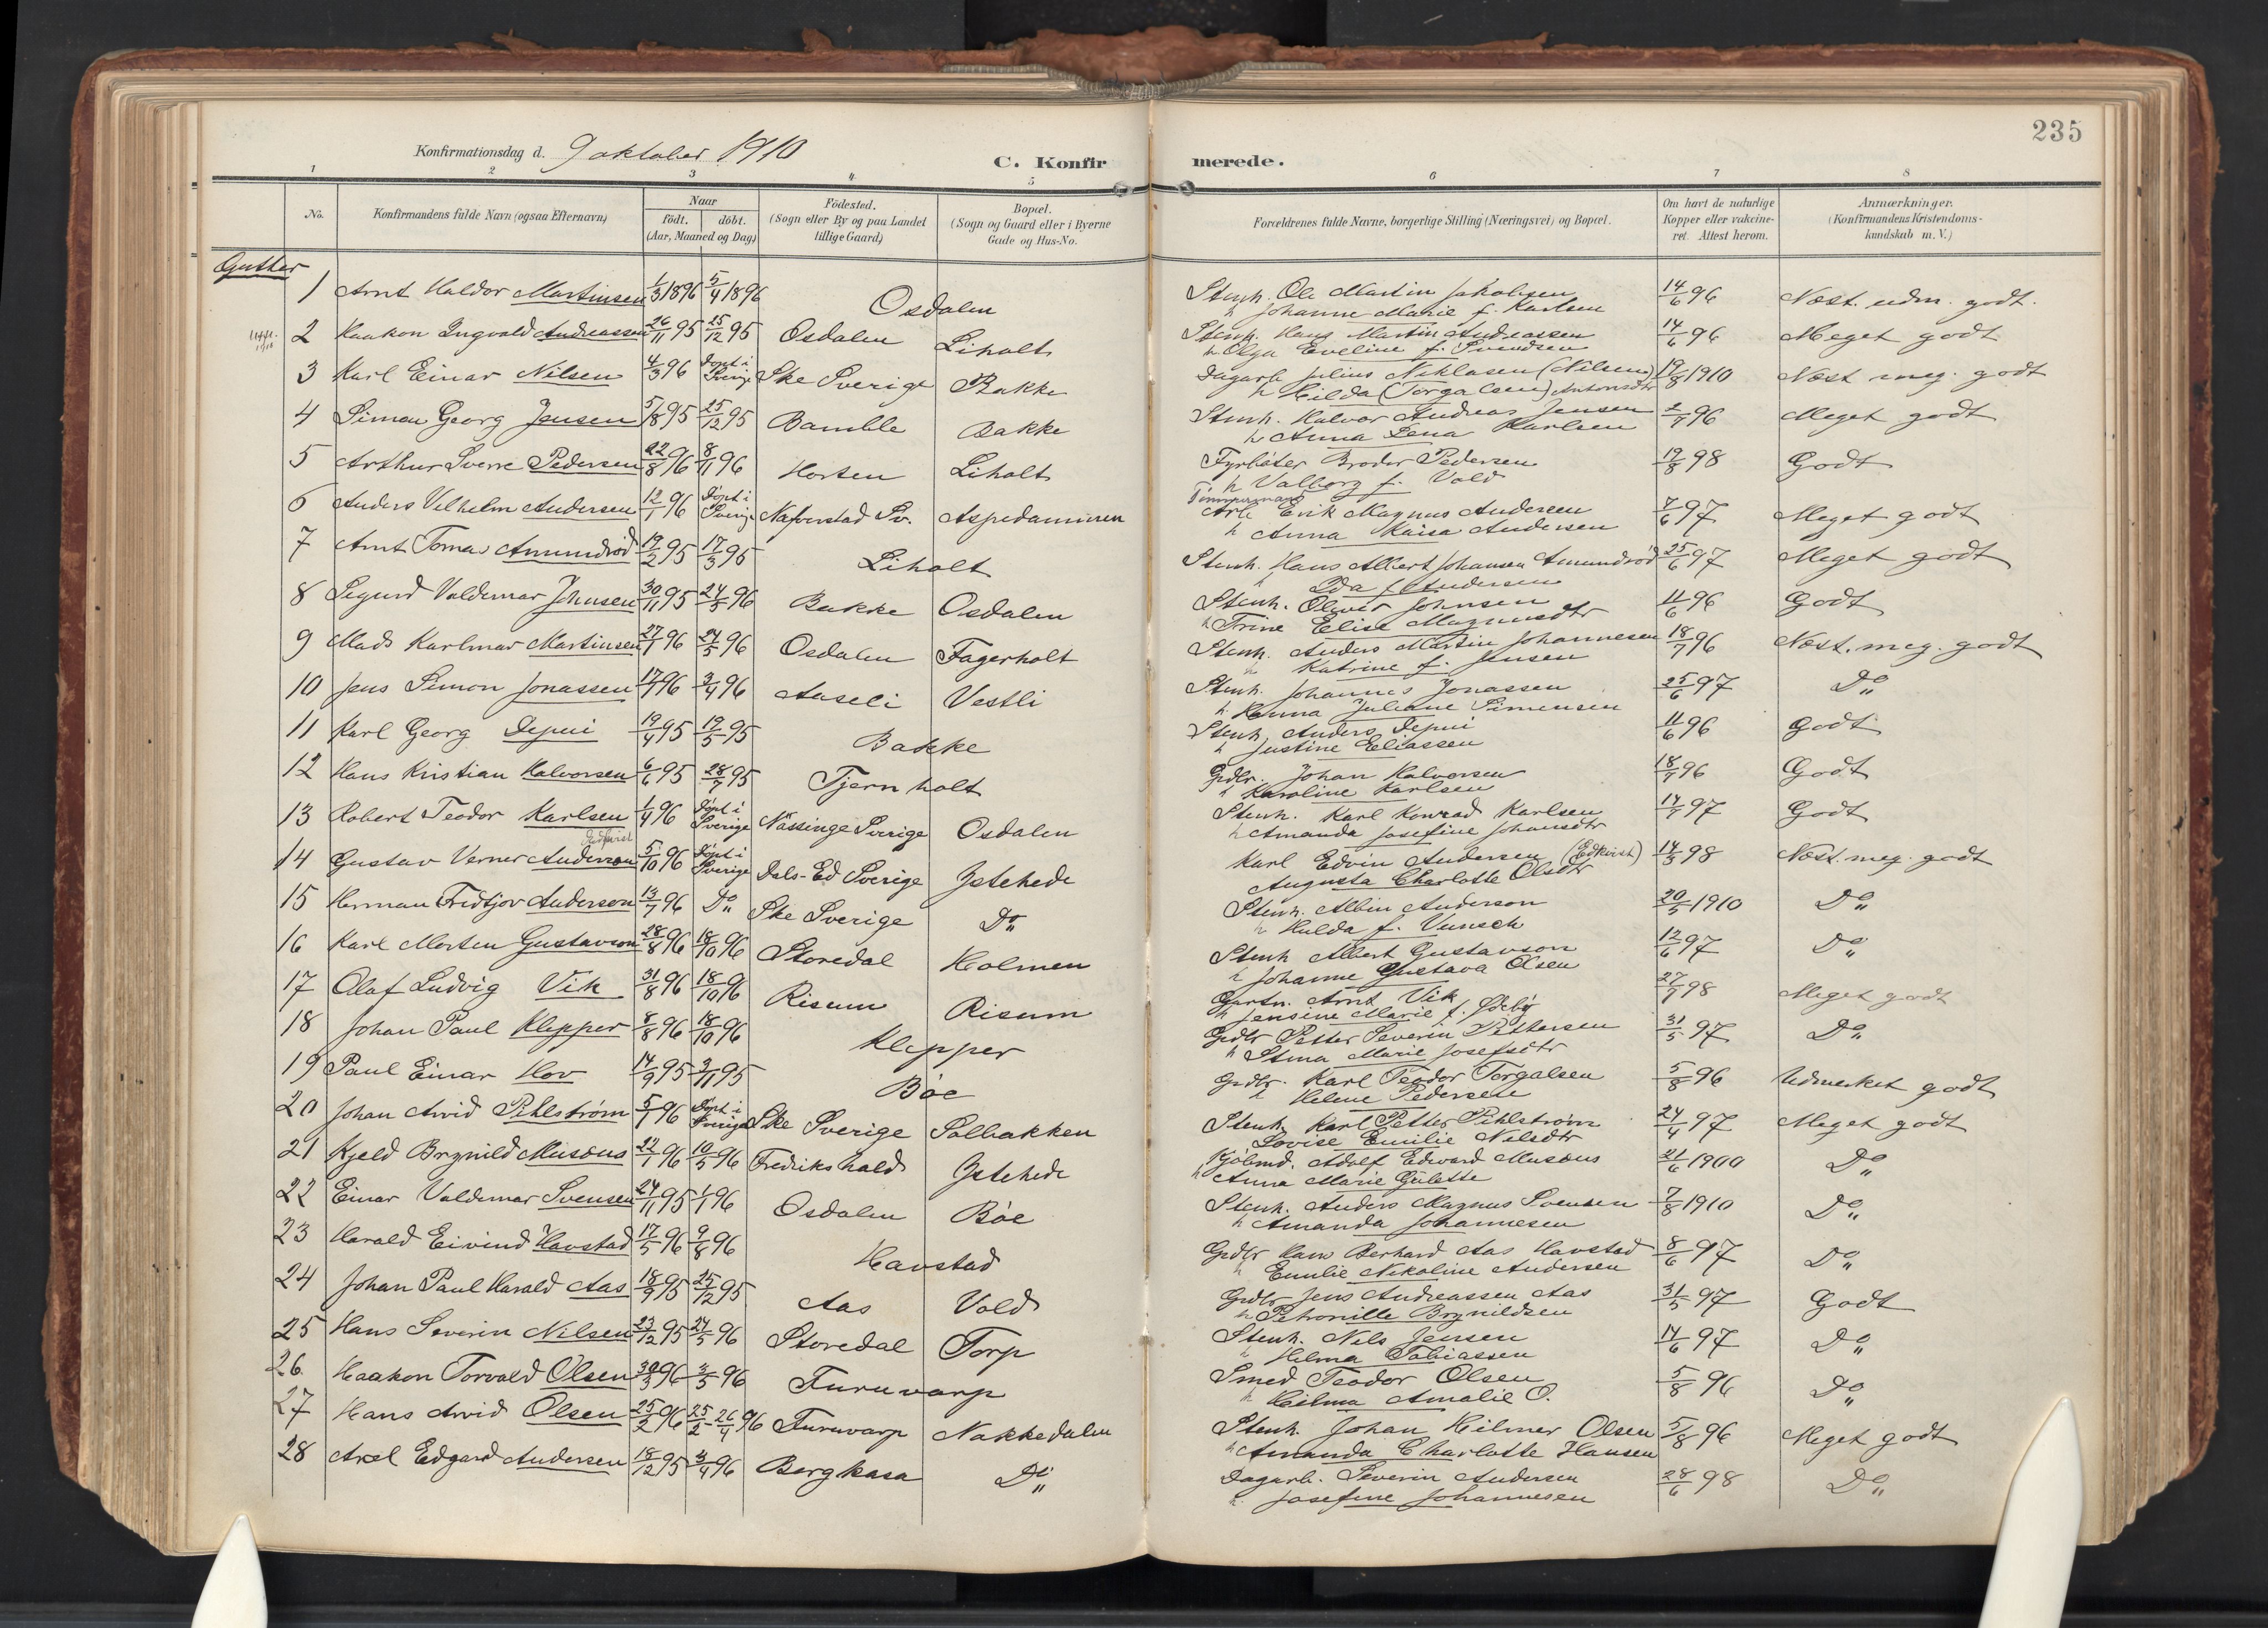 235
Konfirmationsdag d. 9 oktober 1910
C. Konfirmerede.
1 2 3 4 5 6 7 8
No.
Konfirmandens fulde Navn (ogsaa Efternavn)
Naar
født. døbt.
(Aar, Maaned og Dag)
Födested.
(Sogn eller By og paa Landet
tillige Gaard)
Bopæl.
(Sogn og Gaard eller i Byerne
Gade og Hus-No.
Forældrenes fulde Navne, borgerlige Stilling (Næringsvei) og Bopæl.
Om havt de naturlige
Kopper eller vakcine-
ret. Attest herom.
Anmærkninger.
(Konfirmandens Kristendoms-
kundskab m. V.)
Gutter
1 Arnt Haldor Martinsen 1/3 1896 5/4 1896 Osdalen Stenh. Ole Martin Jakobsen 14/6 96 Næst. udm. godt.
h Johanne Marie f. Karlsen
2 Haakon Ingvald Andreassen 26/11 95 25/12 95 Osdalen Liholt Stenh. Hans Martin Andreassen 14/6 96 Meget godt
h Olga Eveline f. Svendsen
3 Karl Einar Nilsen 4/3 96 Döpt i Sverige Ske Sverige Bakke Dagarb Julius Niklasen (Nilsen) 19/8 1910 Næst meg. godt
h Hilda (Torgalsen) Antonsdtr
4 Simon Georg Jensen 5/8 95 25/12 95 Bamble Bakke Stenh. Halvor Andreas Jensen 2/7 96 Meget godt
h Anna Lena Karlsen
5 Arthur Sverre Pedersen 22/8 96 8/11 96 Horten Liholt Fyrböter Brodor Pedersen 19/8 98 Godt
h Valborg f. Vold
Tömmermand
6 Anders Vilhelm Andersen 12/1 96 Döpt i Sverige Nafverstad Sv. Aspedammen Arb Erik Magnus Andersen 7/6 97 Meget godt
h Anna Kaisa Andersen
7 Arnt Tomas Amundröd 19/2 95 17/3 95 Liholt Stenh. Hans Albert Johansen Amundröd 25/6 97 Meget godt
h Ida f Andersen
8 Sigurd Valdemar Johnsen 30/11 95 24/5 96 Bakke Osdalen Stenh. Oliver Johnsen 11/6 96 Godt
h Trine Elise Magnusdtr
9 Mads Karlmar Martinsen 27/1 96 24/5 96 Osdalen Fagerholt Stenh. Anders Martin Johannesen 18/7 96 Næst. meg. godt
h Katrine f. Jensen
10 Jens Simon Jonassen 17/1 96 3/4 96 Aaseli Vestli Stenh. Johannes Jonassen 25/6 97 Do
h. Hanna Juliane Simensen
11 Karl Georg Depui 19/4 95 19/5 95 Bakke Stenh. Anders Depui 11/6 96 Godt
h Justine Eliassen
12 Hans Kristian Halvorsen 6/6 95 28/7 95 Tjernholt Grdbr. Johan Halvorsen 18/7 96 Godt
h Karoline Karlsen
13 Robert Teodor Karlsen 1/4 96 Döpt i Sverige Nässinge Sverige Osdalen Stenh. Karl Konrad Karlsen 14/7 97 Godt
h Amanda Josefine Johansdtr
Edkvist
14 Gustav Verner Anderson 5/10 96 Döpt i Sverige Dals-Ed Sverige Istehede Karl Edvin Andersen (Edkvist) 14/5 98 Næst. meg. godt
Augusta Charlotte Olsdtr
15 Herman Fridtjov Anderson 13/7 96 Do Ske Sverige Do Stenh. Albin Anderson 20/5 1910 Do
h Hulda f. Vunsch
16 Karl Morten Gustavson 28/8 96 18/10 96 Storedal Holmen Stenh Albert Gustavson 12/6 97 Do
h Johanne Gustava Olsen
17 Olaf Ludvig Vik 31/8 96 18/10 96 Risum Risum Gartn. Arnt Vik 27/7 98 Meget godt
h Jensine Marie f. Ødeby
18 Johan Paul Klepper 8/8 96 18/10 96 Klepper Grdbr Petter Severin Pettersen 31/5 97 Do
h Stina Marie Josefsdtr
19 Paul Einar Hov 14/9 95 3/11 95 Böe Grdbr. Karl Teodor Torgalsen 5/8 96 Udmerket godt
h Helene Pedersen
20 Johan Arvid Pihlström 5/1 96 Döpt i Sverige Ske Sverige Solbakken Stenh Karl Petter Pihlström 24/4 97 Meget godt
Lovise Emilie Nilsdtr
21 Kjeld Brynild Musæus 22/1 96 10/5 96 Fredrikshald Istehede Kjöbmd. Adolf Edvard Musæus 21/6 1900 Do
h Anna Marie Gulette
22 Einar Valdemar Svensen 24/11 95 1/1 96 Osdalen Böe Stenh. Anders Magnus Svensen 7/8 1910 Do
h Amanda Johannesen
23 Harald Eivind Havstad 17/5 96 9/8 96 Havstad Grdbr Hans Berhard Aas Havstad 8/6 97 Do
h Emilie Nikoline Andersen
24 Johan Paul Harald Aas 18/9 95 25/12 95 Aas Vold Grdbr Jens Andreassen Aas 31/5 97 Godt
h Petronille Brynildsen
25 Hans Severin Nilsen 23/12 95 24/5 96 Storedal Torp Stenh. Nils Jensen 14/6 97 Do
h Helma Tobiassen
26 Haakon Torvald Olsen 30/3 96 3/5 96 Furuvarp Smed Teodor Olsen 5/8 96 Do
h Hilma Amalie O.
27 Hans Arvid Olsen 25/2 96 25/2 - 26/4 96 Furuvarp Nakkedalen Stenh. Johan Hilmer Olsen 5/8 96 Meget godt
h Amanda Charlotte Hansen
28 Axel Edgard Andersen 18/12 95 3/4 96 Bergkasa Do Dagarb. Severin Andersen 28/6 98 Do
h. Josefine Johannesen